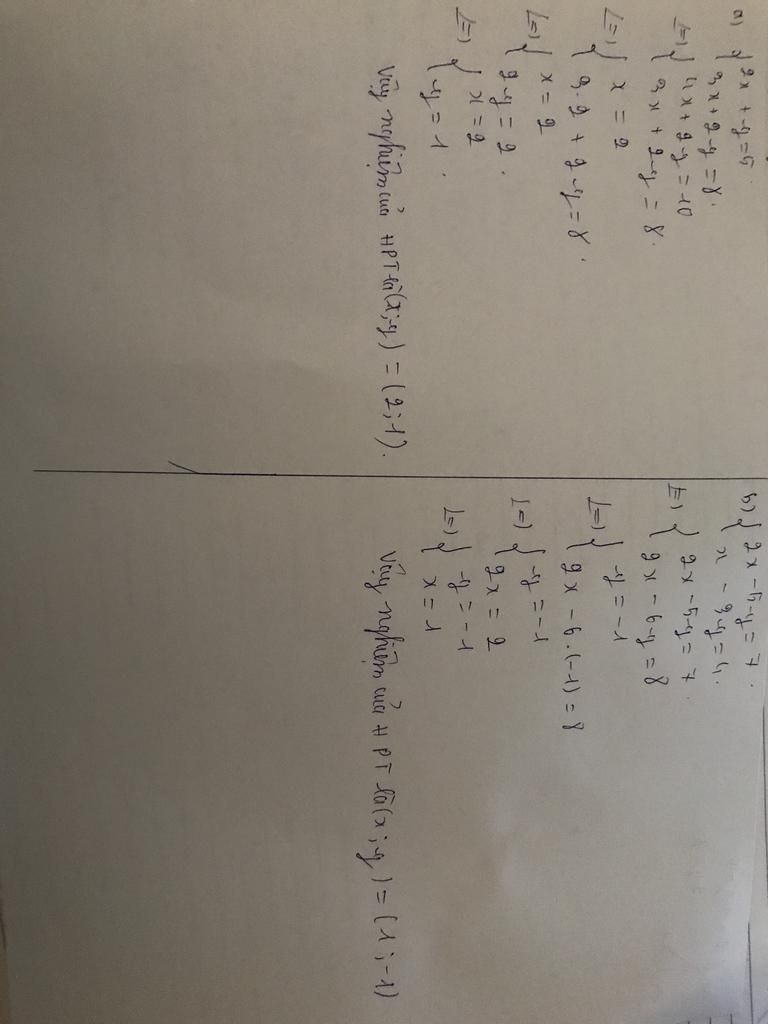 a) { 2x + y = 5.
3x + 2y = 8.
<=> { 4x + 2y = 10
3x + 2y = 8.
<=> { x = 2
3.2 + 2y = 8.
<=> { x = 2
2y = 2.
<=> { x = 2
y = 1.
Vậy nghiệm của HPT là (x; y) = (2; 1).
b) { 2x - 5y = 7.
x - 3y = 4.
<=> { 2x - 5y = 7.
2x - 6y = 8
<=> { y = -1
2x - 6.(-1) = 8
<=> { y = -1
2x = 2
<=> { y = -1
x = 1
Vậy nghiệm của HPT là (x; y) = (1; -1)